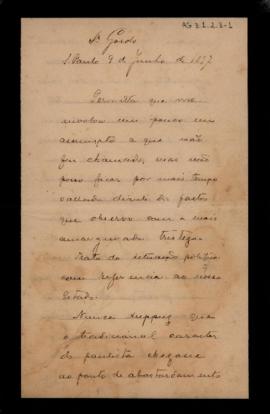 AG 3.1.2.3-1
Dr Gordo
S. Paulo 9 de Junho de 1897
Permitta que me
envolva um pouco em
assumpto a que não
fui chamado, mas não
posso ficar por mais tempo
callado diante de factos
que observo com a mais
amargurada tristeza.
Trata da situação politica
com referencia ao nosso
Estado.
Nunca suppuz que
o tradicional caracter
do paulista chegasse
ao ponto de abastardamento